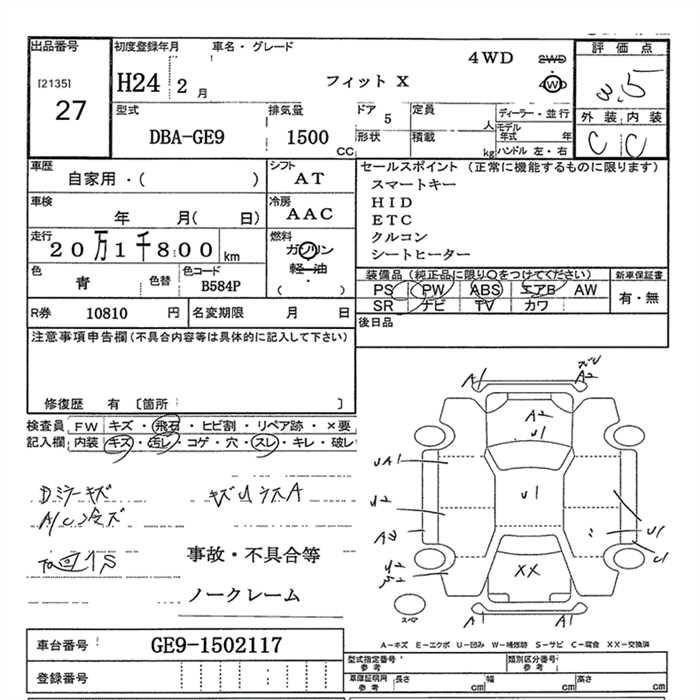 出品番号 初度登録年月 車名・グレード 評価点
[2135] 27
H24 2月 フィット X 4WD 2WD 4WD
3.5
型式 排気量 ドア 定員 ディーラー・並行 外装 内装
DBA-GE9 1500 CC 5 人 モデル年式 年 C C
形状 積載 kg ハンドル 左・右
車歴 シフト セールスポイント (正常に機能するものに限ります)
自家用・( ) AT スマートキー
車検 冷房 HID
年 月( 日) AAC ETC
走行 燃料 クルコン
20万1千800 km ガソリン シートヒーター
軽・油
( ・ )
色 色替 色コード 装備品 (純正品に限り○をつけてください) 新車保証書
青 B584P PS PW ABS エアB AW 有・無
SR ナビ TV カワ
R券 10810 円 名変期限 月 日 後日品
注意事項申告欄(不具合内容等は具体的に記入して下さい)
修復歴 有 〔箇所 〕
検査員 FW キズ・飛石・ヒビ割・リペア跡・×要
記入欄 内装 キズ・汚レ・コゲ・穴・スレ・キレ・破レ
Dミラーキズ
A/C冷ズ
事故・不具合等
ノークレーム
A1 A2
A2
U1
UA1
U1
U2
A2 U1
C1
U2
XX
スペア A1 A1
A-キズ E-エクボ U-凹み W-補修跡 S-サビ C-腐食 XX-交換済
車台番号 GE9-1502117
型式指定番号 参考 類別区分番号 参考
登録番号 車庫証明用 参考 長さ cm 幅 cm 高さ cm